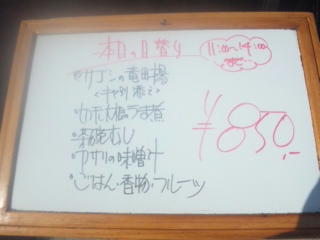 本日の日替り
11:00〜14:00
まで
・サゴシの竜田揚
<キャベツ添え>
・カボチャ大根うま煮
・茶碗むし
・アサリの味噌汁
・ごはん・香物・フルーツ
¥850,-